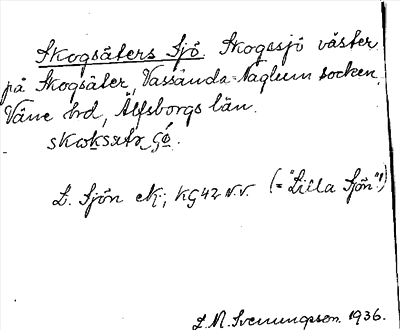 Skogsäters Sjö. Skogssjö väster
på Skogsäter, Vassända-Naglum socken,
Väne hrd, Älfsborgs län.
L. Sjön ek; KG42 N.V. (="Lilla Sjön"!)
L.M. Svenungsson 1936.